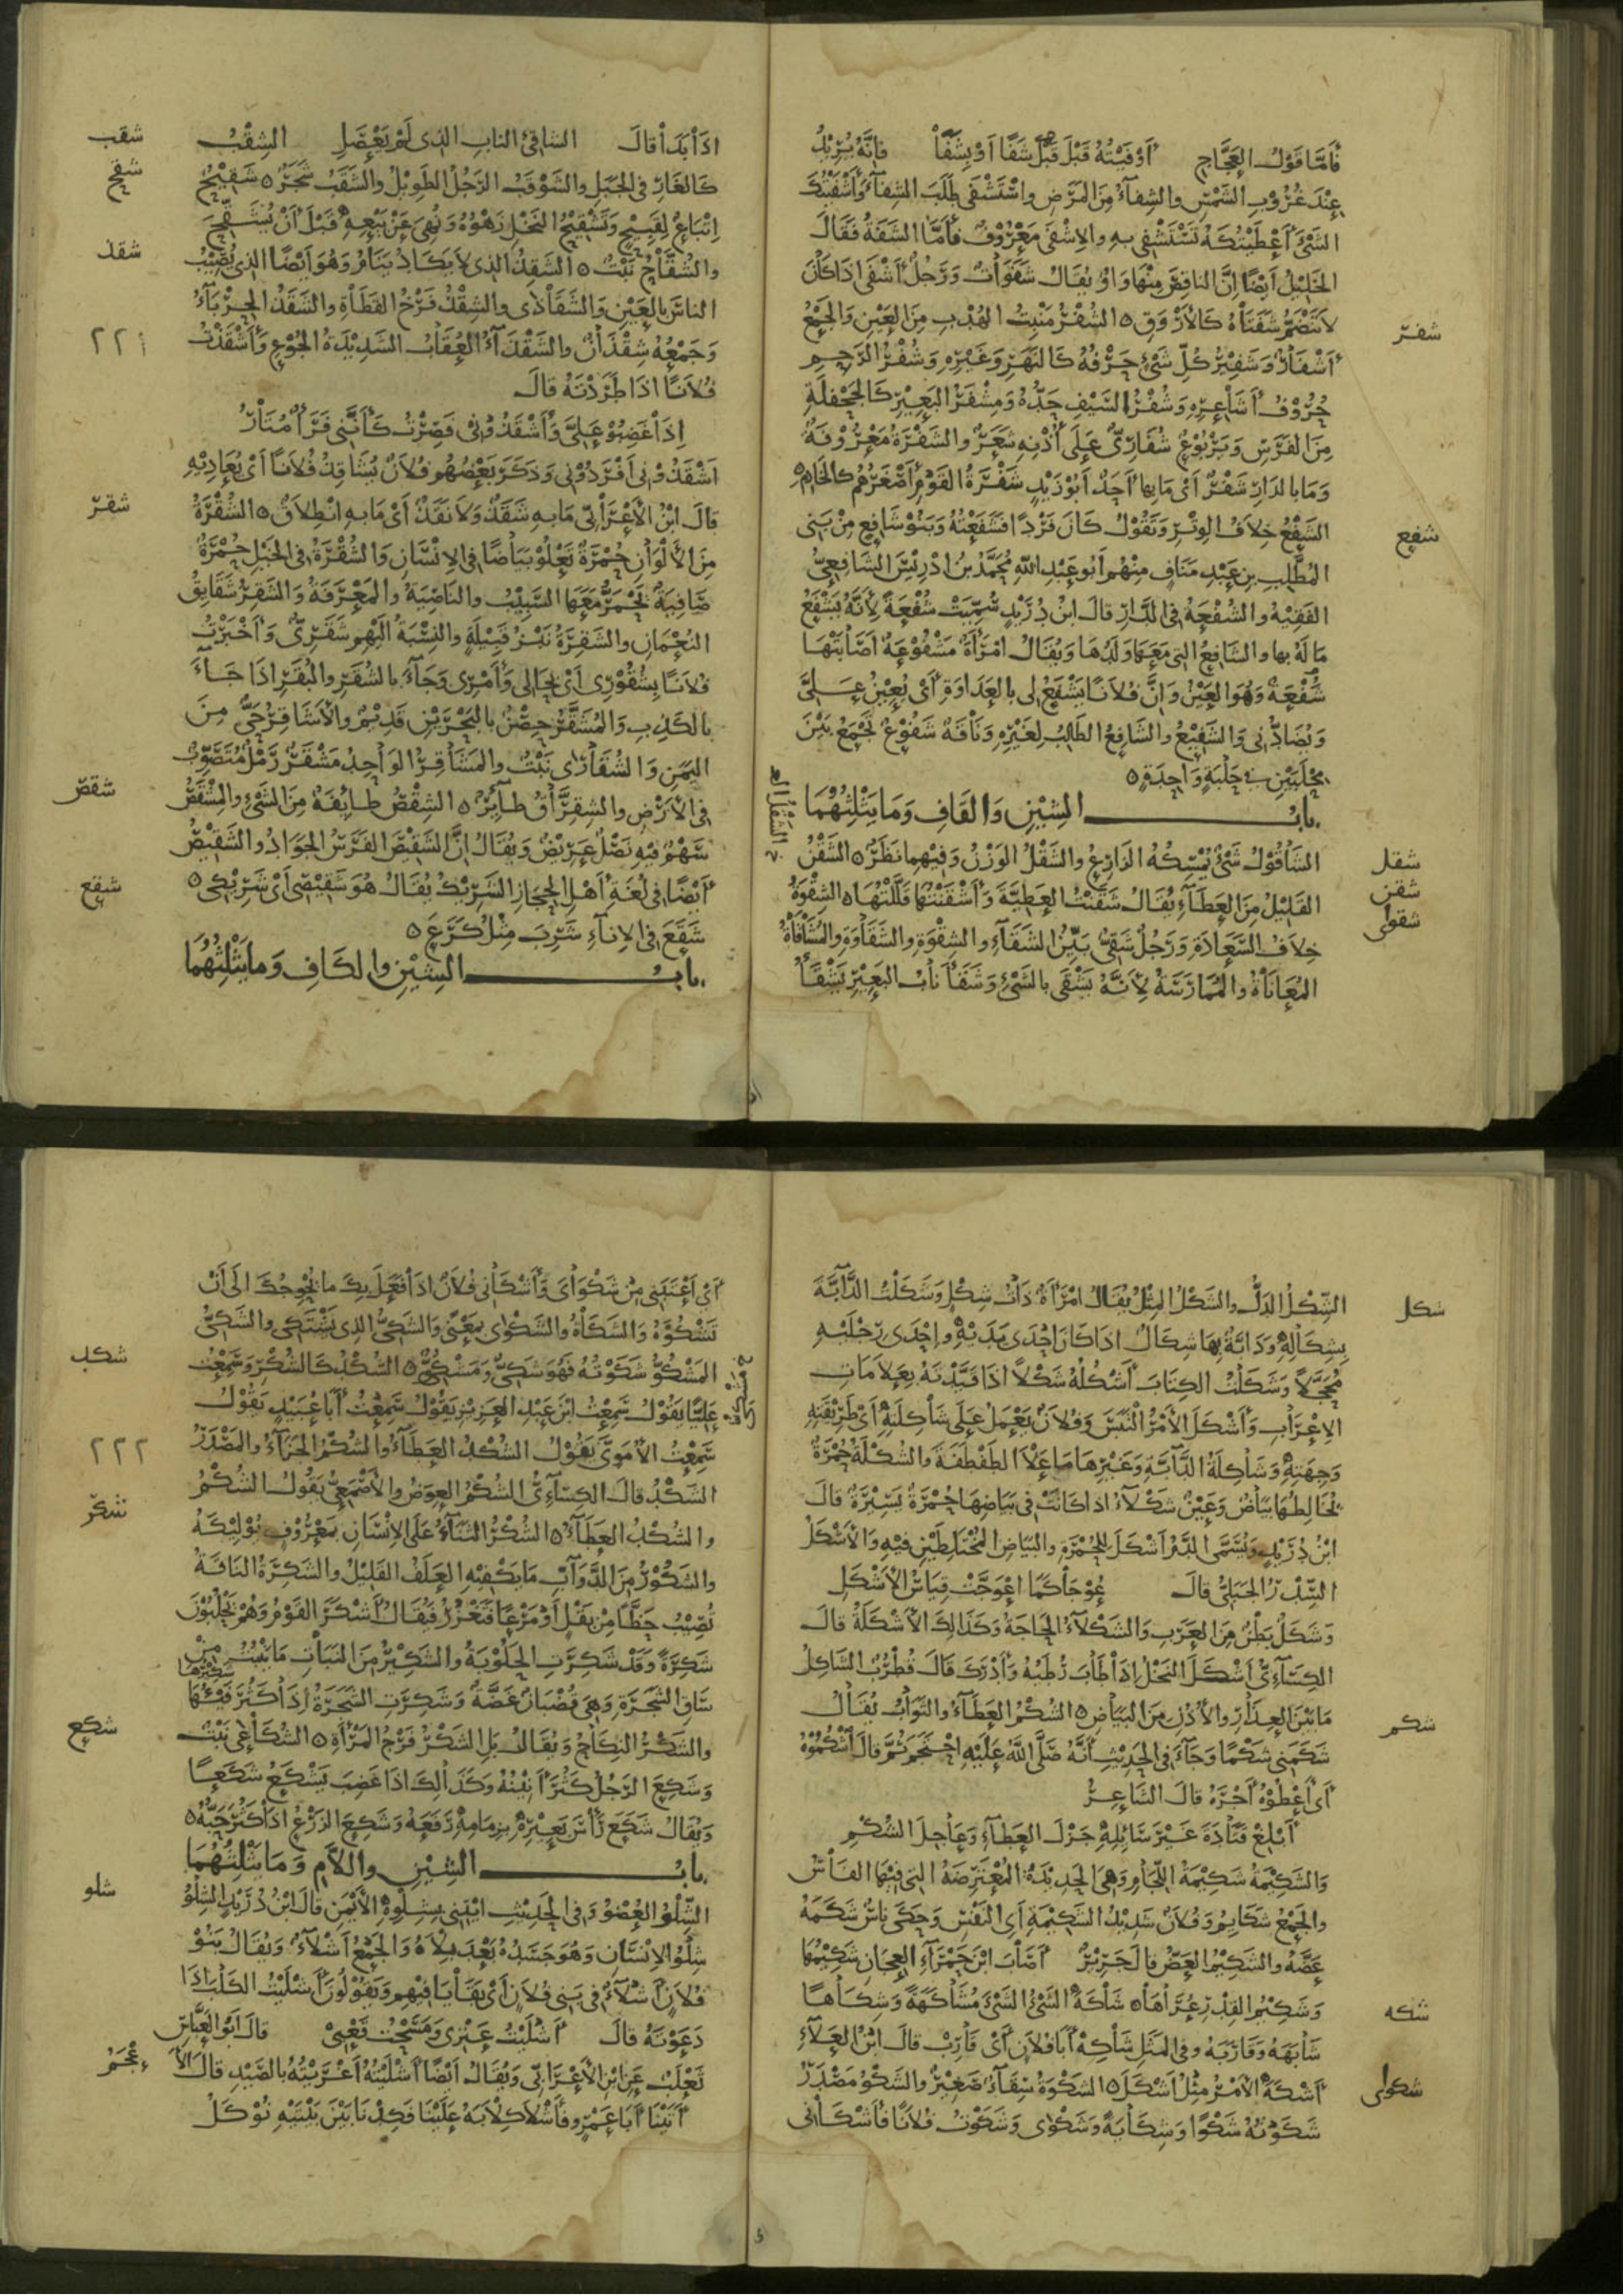 فَأَمَّا قَوْلُ العَجَّاجِ أَوْفَيْتُهُ قَبْلَ شَفًا أَوْ بِشَفَا فإِنَّهُ يُرِيْدُ
عِنْدَ غُرُوْبِ الشَّمْسِ والشِفَآءُ مِنَ المَرَضِ واسْتَشْفَى طَلَبَ الشِفآءَ وَأَشْفَيْتُكَ
الشَّىْءَ أَعْطَيْتُكَهُ تَسْتَشْفِى بِهِ والإِشْفَى مَعْرُوْفٌ فَأَمَّا الشَفَةُ فَقَالَ
الخَلِيْلُ أَيْضًا إِنَّ الناقِصَ مِنْهَا وَاوٌ يُقَالُ شَفَوَاتٌ وَرَجُلٌ أَشْفَى إِذَا كَانَ
لاَ تَنْضَمُّ شَفَتَاهُ كَالأَرْوَقِ ٥ الشُفْرُ مَنْبِتُ الهُدْبِ مِنَ العَيْنِ وَالجَمْعُ
شفر
أَشْفَارٌ وَشَفِيْرُ كُلِّ شَىْءٍ حَرْفُهُ كَالنَهَرِ وَغَيْرِهِ وَشُفْرُ الرَّحِمِ
حُرُوْفُ أَشَاعِرِهِ وَشُفْرُ السَّيْفِ حَدُّهُ وَمِشْفَرُ البَعِيْرِ كَالجَحْفَلَةِ
مِنَ الفَرَسِ وَيَرْبُوْعٌ شُفَارِىٌّ عَلَى أُذُنِهِ شَعَرٌ والشَفْرَةُ مَعْرُوْفَةٌ
وَمَا بِالدَارِ شَفْرٌ أَىْ مَا بِها أَحَدٌ أَبُوْ زَيْدٍ شَفْرَةُ القَوْمِ أَصْغَرُهُمْ كالخَادِمِ ٥
الشَفْعُ خِلاَفُ الوِتْرِ وَتَقُوْلُ كَانَ فَرْدًا فَشَفَعْتُهُ وَبَنُوْ شَافِعٍ مِنْ بَنِى
شفع
المُطَّلِبِ بنِ عَبْدِ مَنَافٍ مِنْهُم أَبُو عَبْدِ اللهِ مُحَمَّدُ بْنُ إِدْرِيْسَ الشَافِعِىُّ
الفَقِيْهُ والشُفْعَةُ فِى الدَّارِ قالَ ابْنُ دُرَيْدٍ سُمِّيَتْ شُفْعَةً لأَنَّهُ يَشْفَعُ
مَالَهُ بها والشَافِعُ التِى مَعَهَا وَلَدُهَا وَيُقَالُ امْرَأَةٌ مَشْفُوْعَةٌ أَصَابَتْهَا
شُفْعَةٌ وَهُوَ العَيْنُ وَإِنَّ فُلاَنًا يَشْفَعُ لِى بِالعَدَاوَةِ أَىْ يُعِيْنُ عَلَىَّ
وَيُضَادُّنِى وَالشَفِيْعُ والشَافِعُ الطَالِبُ لِغَيْرِهِ وَنَاقَةٌ شَفُوْعٌ تَجْمَعُ بَيْنَ
مِحْلَبَيْنِ فِى حَلْبَةٍ وَاحِدَةٍ ٥
بابُ الشِيْنِ وَالقَافِ وَمَا يَثْلِثُهُمَا
الشَاقُوْلُ شَىْءٌ يُمْسِكُهُ الذَارِعُ والشَقْلُ الوَزْنُ وَفِيْهِما نَظَرٌ ٥ الشَقْنُ
شقل
القَلِيْلُ مِنَ العَطَآءِ يُقَالُ شَقَنْتُ العَطِيَّةَ وَأَشْقَنْتُهَا قَلَّلْتُهَا ٥ الشِقْوَةُ
شقن
شقواى
خِلاَفُ السَّعَادَةِ وَرَجُلٌ شَقِىٌّ بَيِّنُ الشَقَآءِ والشِقْوَةِ والشَقَاوَةِ والمُشَاقَاةُ
المُعَانَاةُ والمُمَارَسَةُ لأَنَّهُ يَشْقَى بِالشَىْءِ وَشَقَأَ نَابُ البَعِيْرِ يَشْقَأُ
إِذَا بَدَأَ قالَ الشاقِئُ النابِ الذِى لَمْ يَعْصَلِ الشِقْبُ
شقب
كَالغَارِ فِى الجَبَلِ والشَوْقَبُ الرَجُلُ الطَوِيْلُ والشَقَبُ شَجَرٌ ٥ شَقِيْحٌ
شقح
إِتْبَاعٌ لِقَبِيْحٍ وَتَشْقِيْحُ النَخْلِ زَهْوُهُ وَنُهِىَ عَنْ بَيْعِهِ قَبْلَ أَنْ يُشَقِّحَ
والشُقَّاحُ نَبْتٌ ٥ الشَقِذُ الذِى لاَ يَكَادُ يَنَامُ وَهُوَ أَيْضًا الذِى يُصِيْبُ
شقذ
الناسَ بِالعَيْنِ وَالشَقَاذَى والشِقْذُ فَرْخُ القَطَاةِ والشَقَذُ الحِرْبَآءُ
وَجَمْعُهُ شِقْذَانٌ والشَقْذَآءُ العُقَابُ الشَدِيْدَةُ الجُوْعِ وَأَشْقَذْتُ
٢٢١
فُلاَنًا إِذَا طَرَدْتَهُ قالَ
إِذَا غَضِبُوْا عَلَىَّ وَأَشْقَذُوْنِى فَصِرْتُ كَأَنَّنِى فَرَأٌ مُتَارُ
أَشْقَذُوْنِى أَفْرَدُوْنِى وَذَكَرَ بَعْضُهُم فُلاَنٌ يُشَاقِذُ فُلاَنًا أَىْ يُعَادِيْهِ
قالَ ابْنُ الأَعْرَابِىِّ مَا بِهِ شَقَذٌ وَلاَ نَقَذٌ أَىْ مَا بِهِ انْطِلاَقٌ ٥ الشُقْرَةُ
شقر
مِنَ الأَلْوَانِ حُمْرَةٌ تَعْلُوْ بَيَاضًا فِى الإِنْسَانِ وَالشُقْرَةُ فِى الخَيْلِ حُمْرَةٌ
صَافِيَةٌ يَحْمَرُّ مَعَهَا السَّبِيْبُ والنَاصِيَةُ والمَعْرَفَةُ وَالشَقِرُ شَقَايِقُ
النُعْمَانِ والشَقِرَةُ نَبْزُ قَبِيْلَةٍ والنِسْبَةُ إِلَيْهِم شَقَرِىٌّ وَأَخْبَرْتُ
فُلاَنًا بِشُقُوْرِى أَىْ بِحَالِى وَأَمْرِى وَجَآءَ بِالشُقَرِ والبُقَرِ إِذَا جَآءَ
بالكَذِبِ وَالمُشَقَّرُ حِصْنٌ بِالبَحْرَيْنِ قَدِيْمٌ والأَشَاقِرُ حَىٌّ مِنَ
اليَمَنِ وَالشُقَارَى نَبْتٌ والمَشَاقِرُ الوَاحِدُ مَشْقَرٌ رَمْلٌ مُتَصَوِّبٌ
فِى الأَرْضِ والشِقِرَّاقُ طَآيِرٌ ٥ الشِقْصُ طَايِفَةٌ مِنَ الشَىْءِ والمِشْقَصُ
شقص
سَهْمٌ فِيْهِ نَصْلٌ عَرِيْضٌ وَيُقَالُ إِنَّ الشَقِيْصَ الفَرَسُ الجَوَادُ والشَقِيْصُ
أَيْضًا فِى لُغَةِ أَهْلِ الحِجَازِ الشَرِيْكُ يُقَالُ هُوَ شَقِيْصِى أَىْ شَرِيْكِى ٥
شَقَعَ فِى الإِنَآءِ شَرِبَ مِثْلُ كَرَعَ ٥
شقع
بابُ الشِيْنِ والكَافِ وَمَا يَثْلِثُهُمَا
الشِكْلُ الدَلُّ والشَكْلُ المِثْلُ يُقَالُ امْرَأَةٌ ذَاتُ شِكْلٍ وَشَكَلْتُ الدَّآبَّةَ
شكل
بِشِكَالِهِ وَدَابَّةٌ بِهَا شِكَالٌ إِذَا كَانَ إِحْدَى يَدَيْهِ وإِحْدَى رِجْلَيْهِ
مُحَجَّلاً وَشَكَلْتُ الكِتَابَ أَشْكُلُهُ شَكْلاً إِذَا قَيَّدْتَهُ بِعَلاَمَاتِ
الإِعْرَابِ وَأَشْكَلَ الأَمْرُ الْتَبَسَ وَفُلاَنٌ يَعْمَلُ عَلَى شَاكِلَتِهِ أَىْ طَرِيْقَتِهِ
وَجِهَتِهِ وَشَاكِلَةُ الدَّآبَّةِ وَغَيْرِهَا مَا عَلاَ الطَفْطَفَةَ والشُكْلَةُ حُمْرَةٌ
يُخَالِطُهَا بَيَاضٌ وَعَيْنٌ شَكْلآءُ إِذَا كَانَتْ فِى بَيَاضِهَا حُمْرَةٌ يَسِيْرَةٌ قالَ
ابْنُ دُرَيْدٍ وَيُسَمَّى الدَّمُ أَشْكَلَ لِلحُمْرَةِ والبَيَاضِ المُخْتَلِطَيْنِ فِيْهِ وَالأَشْكَلُ
السِّدْرُ الجَبَلِىُّ قالَ عُوْجًا كَمَا اعْوَجَّتْ قِيَاسُ الأَشْكَلِ
وَشَكَلٌ بَطْنٌ مِنَ العَرَبِ وَالشَكْلآءُ الحَاجَةُ وَكَذَلِكَ الأَشْكَلَةُ قالَ
الكِسَآءِىُّ أَشْكَلَ النَخْلُ إِذَا طَابَ رُطَبُهُ وَأَدْرَكَ قَالَ قُطْرُبٌ الشَاكِلُ
مَا بَيْنَ العِذَارِ والأُذُنِ مِنَ البَيَاضِ ٥ الشُكْمُ العَطَآءُ والثَوَابُ يُقَالُ
شكم
شَكَمَنِى شَكْمًا وَجَآءَ فِى الحَدِيْثِ أَنَّهُ صَلَّى اللهُ عَلَيْهِ احْتَجَمَ ثُمَّ قالَ أُشْكُمُوْهُ
أَىْ أَعْطُوْهُ أَجْرَهُ قالَ الشَاعِرُ
أَبْلِغْ قَتَادَةَ غَيْرَ سَايِلِهِ جَزْلَ العَطَآءِ وَعَاجِلَ الشُكْمِ
وَالشَكِيْمَةُ شَكِيْمَةُ اللِّجَامِ وَهِىَ الحَدِيْدَةُ المُعْتَرِضَةُ التِى فِيْهَا الفَاسُ
والجَمْعُ شَكَايِمُ وَفُلاَنٌ شَدِيْدُ الشَكِيْمَةِ أَىِ النَفْسِ وَحَكَى نَاسٌ شَكَمَهُ
عَضَّهُ والشَكِيْمُ العَضُّ قالَ جَرِيْرٌ أَصَابَ ابْنَ حَمْرَآءِ العِجَانِ شَكِيْمُهَا
وَشَكِيْمُ القِدْرِ عُرَاهَا ٥ شَاكَهَ الشَىْءُ الشَىْءَ مُشَاكَهَةً وَشِكَاهًا
شكه
شَابَهَهُ وَقَارَبَهُ وفِى المَثَلِ شَاكِهْ أَبَا فُلاَنٍ أَىْ قَارِبْ قالَ ابْنُ العَلآءِ
أَشْكَهَ الأَمْرُ مِثْلُ أَشْكَلَ ٥ الشَكْوَةُ سِقَآءٌ صَغِيْرٌ والشَكْوُ مَصْدَرُ
شكواى
شَكَوْتُهُ شَكْوًا وَشِكَايَةً وَشَكْوَى وَشَكَوْتُ فُلاَنًا فَأَشْكَانِى
أَىْ أَعْتَبَنِى مِنْ شَكْوَاىَ وَأَشْكَانِى فُلاَنٌ إِذَا فَعَلَ بِكَ مَا يُحْوِجُكَ إِلَى أَنْ
تَشْكُوَهُ وَالشَكَاةُ والشَكْوَى بِمَعْنًى وَالشَكِىُّ الذِى يَشْتَكِى والشَكِىُّ
المَشْكُوُّ شَكَوْتُهُ فَهُوَ شَكِىٌّ وَمَشْكُوٌّ ٥ الشُكْبُ كَالشُكْرِ وَسَمِعْتُ
شكب
عَلِيًّا يَقُوْلُ سَمِعْتُ ابْنَ عَبْدِ العَزِيْزِ يَقُوْلُ سَمِعْتُ أَبَا عُبَيْدٍ يَقُوْلُ
سَمِعْتُ الأُمَوِىَّ يَقُوْلُ الشُكْبُ العَطَآءُ والشُكْمُ الجَزَآءُ والمَصْدَرُ
٢٢٢
الشَكْدُ قالَ الكِسَآءِىُّ الشُكْمُ العِوَضُ والأَصْمَعِىُّ يَقُوْلُ الشُكْمُ
والشُكْبُ العَطَآءُ ٥ الشُكْرُ الثَنَآءُ عَلَى الإِنْسَانِ بِمَعْرُوْفٍ يُوْلِيْكَهُ
شكر
والشَكُوْرُ مِنَ الدَّوَآبِّ مَا يَكْفِيْهِ العَلَفُ القَلِيْلُ والشَكِرَةُ النَاقَةُ
تُصِيْبُ حَظًّا مِنْ بَقْلٍ أَوْ مَرْعًى فَتَغْزُرُ فَيُقَالُ أَشْكَرَ القَوْمُ وَهُمْ يَحْلُبُوْنَ
شَكِرَةً وَقَدْ شَكِرَتِ الحَلُوْبَةُ والشَكِيْرُ مِنَ النَبَاتِ مَا يَنْبُتُ مِنْ
سَاقِ الشَجَرَةِ وَهِىَ قُضْبَانٌ غَضَّةٌ وَشَكِرَتِ الشَجَرَةُ إِذَا كَثُرَ
شَكِيْرُهَا
والشَكْرُ النِكَاحُ وَيُقَالُ بَلِ الشَكْرُ فَرْجُ المَرْأَةِ ٥ الشُكَاعَى نَبْتٌ
شكع
وَشَكِعَ الرَجُلُ كَثُرَ أَنِيْنُهُ وَكَذَلِكَ إِذَا غَضِبَ يَشْكَعُ شَكَعًا
وَيُقَالُ شَكَعَ رَأْسَ بَعِيْرِهِ بِزِمَامِهِ رَفَعَهُ وَشَكِعَ الزَرْعُ إِذَا كَثُرَ حَبُّهُ ٥
بابُ الشِيْنِ والَّلاَمِ وَمَا يَثْلِثُهُمَا
الشِّلْوُ العُضْوُ وَفِى الحَدِيْثِ ايْتِنِى بِشِلْوِهِ الأَيْمَنِ قالَ ابْنُ دُرَيْدٍ الشِلْوُ
شلو
شِلْوُ الإِنْسَانِ وَهُوَ جَسَدُهُ بَعْدَ بِلاَهُ وَالجَمْعُ أَشْلآءٌ وَيُقَالُ بَنُوْ
فُلاَنٍ أَشْلآءٌ فِى بَنِى فُلاَنٍ أَىْ بَقَايَا فِيْهِم وَيَقُوْلُوْنَ أَشْلَيْتُ الكَلْبَ إِذَا
دَعَوْتَهُ قالَ أَشْلَيْتُ عَنْزِى وَمَسَحْتُ قَعْبِى قالَ أَبُو العَبَّاسِ
ثَعْلَبٌ عَنِ ابْنِ الأَعْرَابِىِّ وَيُقَالُ أَيْضًا أَشْلَيْتُهُ أَغْرَيْتُهُ بِالصَيْدِ قالَ الأَ
عْجَمُ
أَتَيْنَا أَبَا عَمْرٍو فَأَشْلَى كِلاَبَهُ عَلَيْنَا فَكِدْنَا بَيْنَ بَيْتَيْهِ نُوْكَلُ